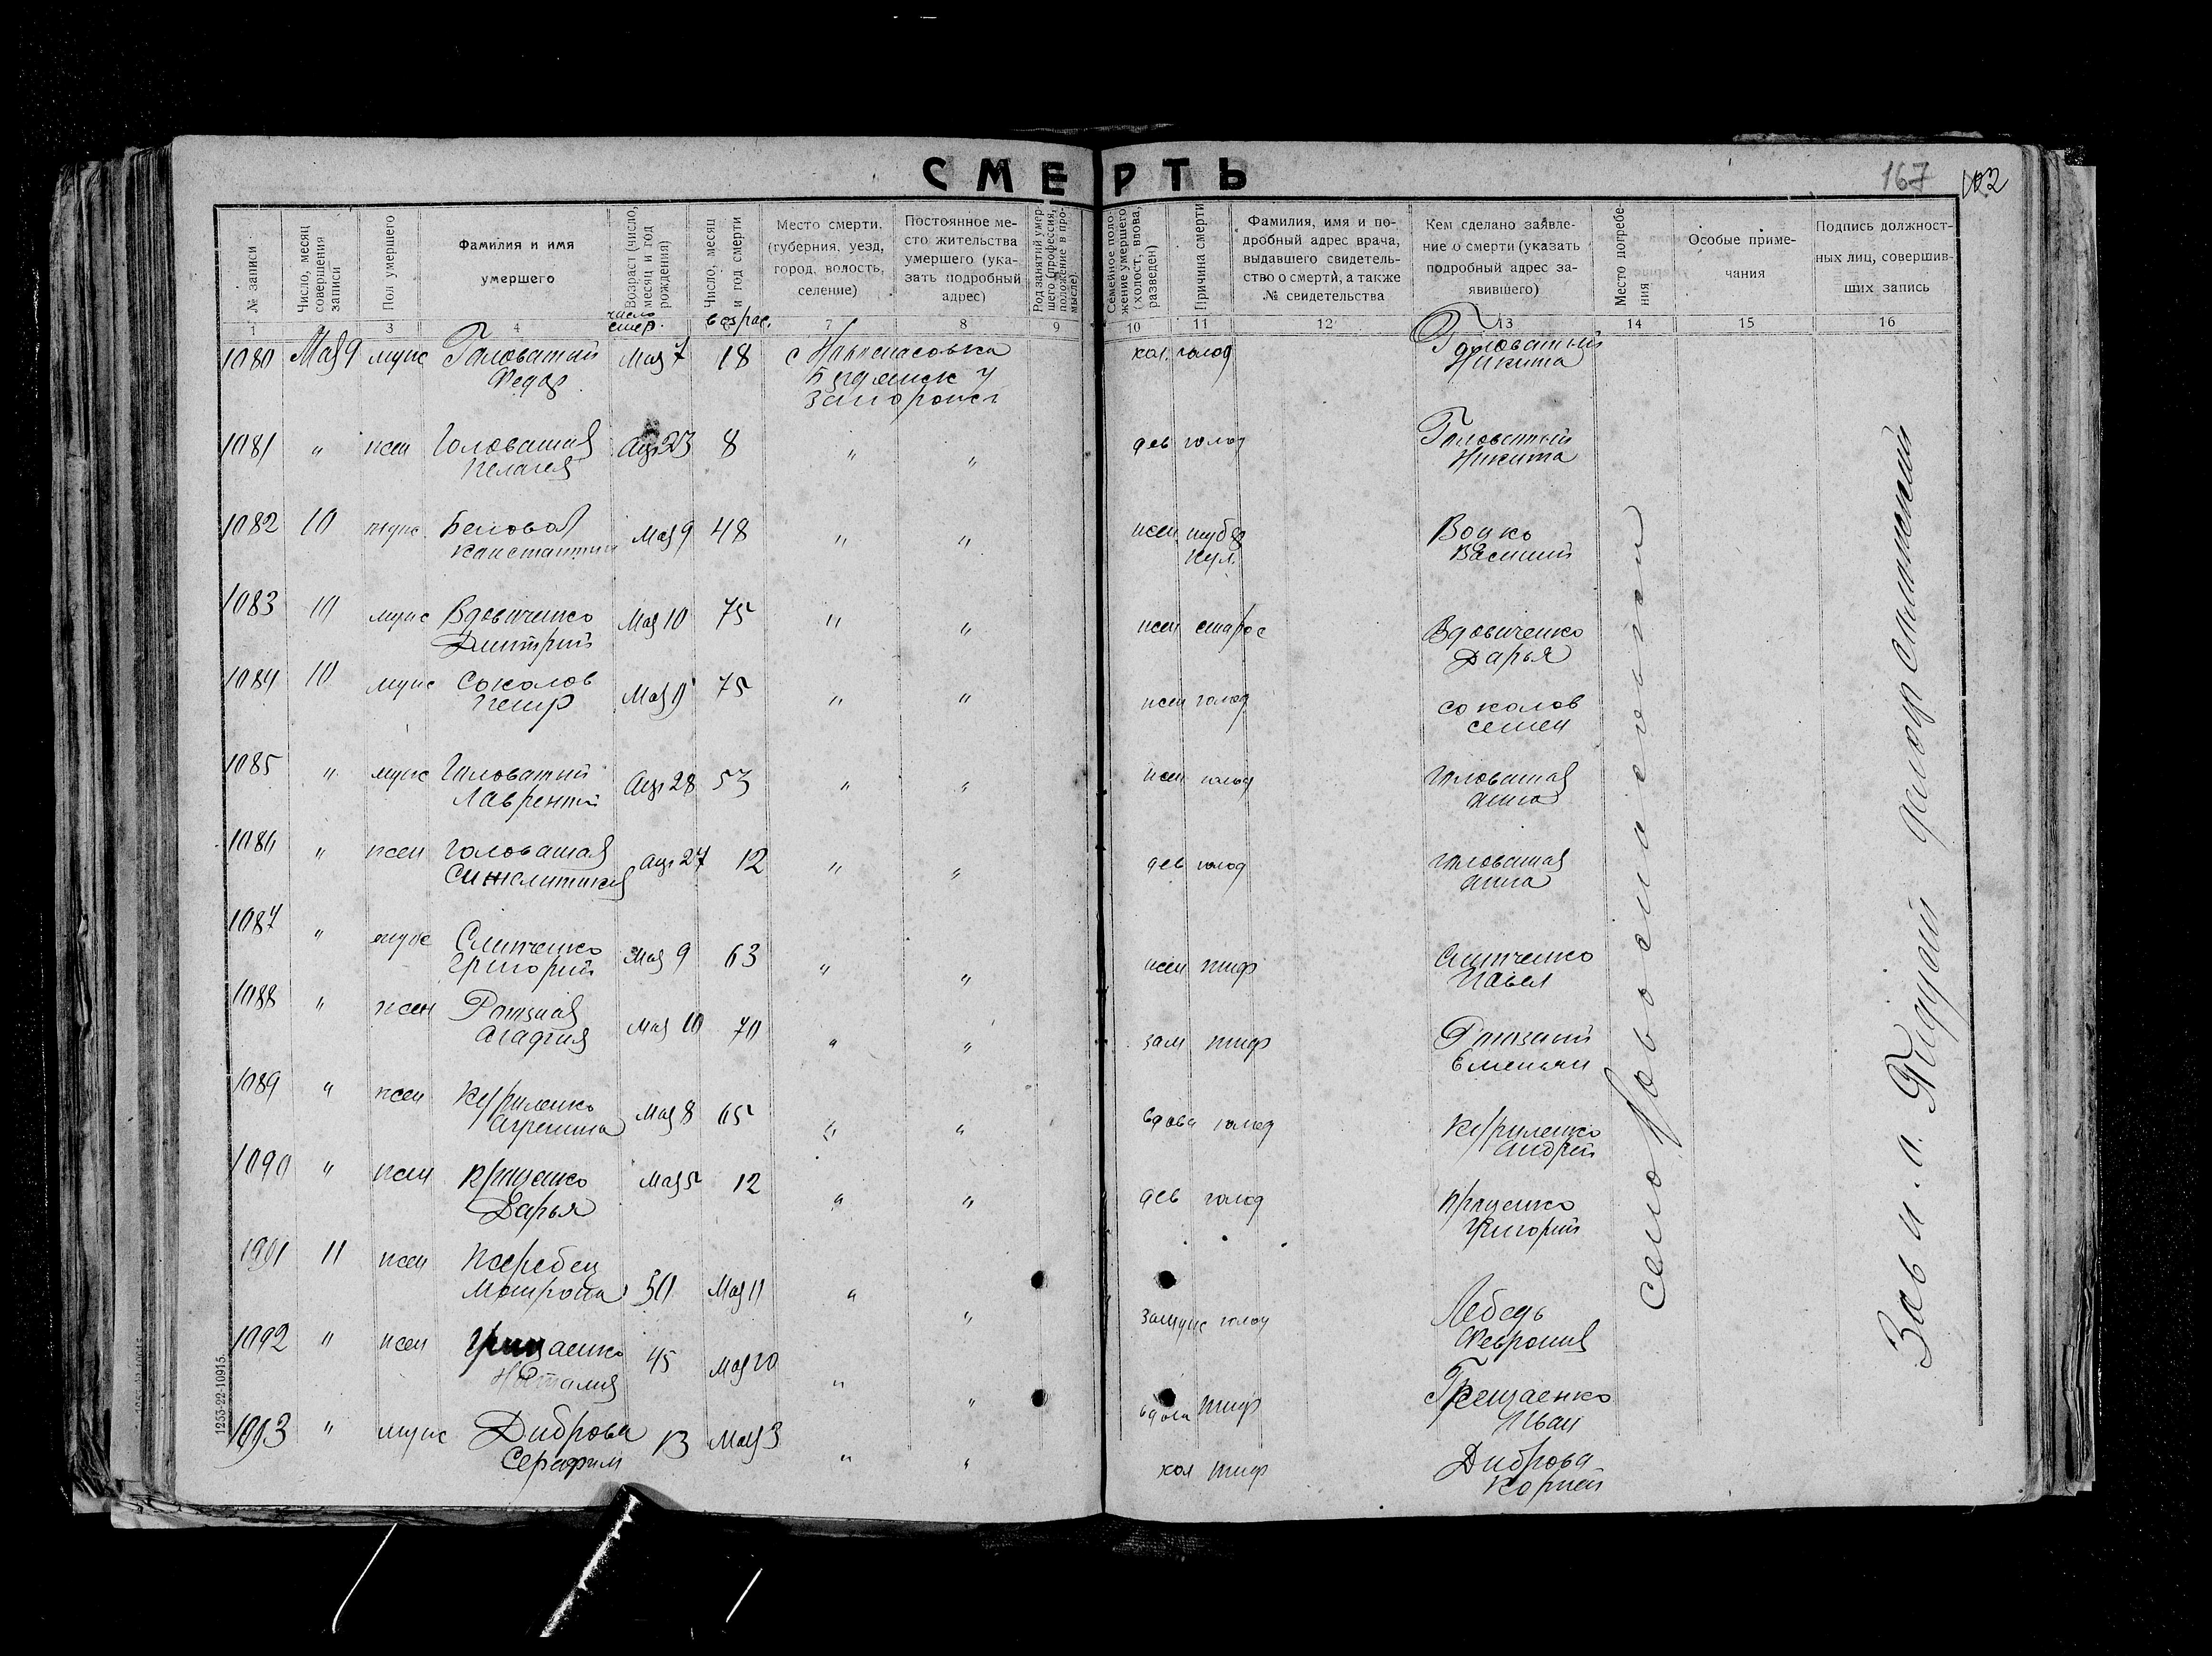 СМЕРТЬ
167 102
№ записи
Число, месяц совершения записи
Пол умершего
Фамилия и имя умершего
Возраст (число, месяц и год рождения)
Число, месяц и год смерти
Место смерти. (губерния, уезд, город, волость, селение)
Постоянное место жительства умершего (указать подробный адрес)
Род занятий умершего (профессия, положение в промысле)
Семейное положение умершего (холост, вдова, разведен)
Причина смерти
Фамилия, имя и подробный адрес врача, выдавшего свидетельство о смерти, а также № свидетельства
Кем сделано заявление о смерти (указать подробный адрес заявившего)
Место погребения
Особые примечания
Подпись должностных лиц, совершивших запись
число смер. возрас.
1 3 4 7 8 9 10 11 12 13 14 15 16
1080 Мая 9 муж Головатий Мая 7 18 с хол. голод Головатый
Федор Никита
1081 " жен Головатая Апр 23 8 " " дев голод Головатый
Пелагея Никита
1082 10 муж Белова Мая 9 48 " " жен тубер Бойко
Константин кул. Василий
1083 10 муж Вдовиченко Мая 10 75 " " жен старос Вдовиченко
Дмитрий Дарья
1084 10 муж Соколов Мая 9 75 " " жен голод Соколов
Петр Семен
1085 " муж Головатий Апр 28 53 " " жен голод Головатая
Лаврентий Анна
1086 " жен Головатая Апр 27 12 " " дев голод Головатая
Анна
1087 " муж Слипченко Мая 9 63 " " жен тиф Слипченко
Григорий Павел
1088 " жен Мая 10 70 " " зам тиф
Агафия Емельян
1089 " жен Куриленко Мая 8 65 " " вдова голод Куриленко
Агрепина Андрей
1090 " жен Мая 5 12 " " дев голод
Дарья Григорий
1091 11 жен Жеребец
Матрона 50 Мая 11 " " замуж голод Лебедь
Феврония
1092 " жен 45 Мая 10 " " вдова тиф Грецаенко
Наталия Иван
1093 " муж Диброва 13 Мая 3 " " хол тиф Диброва
Серафим Корней
село Новоспасовки
Зав и. о.
1253-22-10915